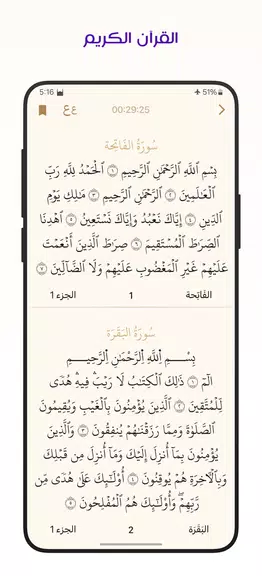 القرآن الكريم
5:16 51%
ع ع 00:29:25
سُورَةُ الفَاتِحَة
بِسْمِ ٱللَّهِ ٱلرَّحْمَٰنِ ٱلرَّحِيمِ ١ ٱلْحَمْدُ لِلَّهِ رَبِّ
ٱلْعَٰلَمِينَ ٢ ٱلرَّحْمَٰنِ ٱلرَّحِيمِ ٣ مَٰلِكِ يَوْمِ
ٱلدِّينِ ٤ إِيَّاكَ نَعْبُدُ وَإِيَّاكَ نَسْتَعِينُ ٥ ٱهْدِنَا
ٱلصِّرَٰطَ ٱلْمُسْتَقِيمَ ٦ صِرَٰطَ ٱلَّذِينَ أَنْعَمْتَ
عَلَيْهِمْ غَيْرِ ٱلْمَغْضُوبِ عَلَيْهِمْ وَلَا ٱلضَّآلِّينَ ٧
الفَاتِحة 1 الجزء ١
سُورَةُ البَقَرَة
بِسْمِ ٱللَّهِ ٱلرَّحْمَٰنِ ٱلرَّحِيمِ
الٓمٓ ١ ذَٰلِكَ ٱلْكِتَٰبُ لَا رَيْبَ ۛ فِيهِ ۛ هُدًى
لِّلْمُتَّقِينَ ٢ ٱلَّذِينَ يُؤْمِنُونَ بِٱلْغَيْبِ وَيُقِيمُونَ
ٱلصَّلَوٰةَ وَمِمَّا رَزَقْنَٰهُمْ يُنفِقُونَ ٣ وَٱلَّذِينَ
يُؤْمِنُونَ بِمَآ أُنزِلَ إِلَيْكَ وَمَآ أُنزِلَ مِن قَبْلِكَ
وَبِٱلْءَاخِرَةِ هُمْ يُوقِنُونَ ٤ أُو۟لَٰٓئِكَ عَلَىٰ هُدًى مِّن
رَّبِّهِمْ ۖ وَأُو۟لَٰٓئِكَ هُمُ ٱلْمُفْلِحُونَ ٥
البَقَرَة 2 الجزء ١